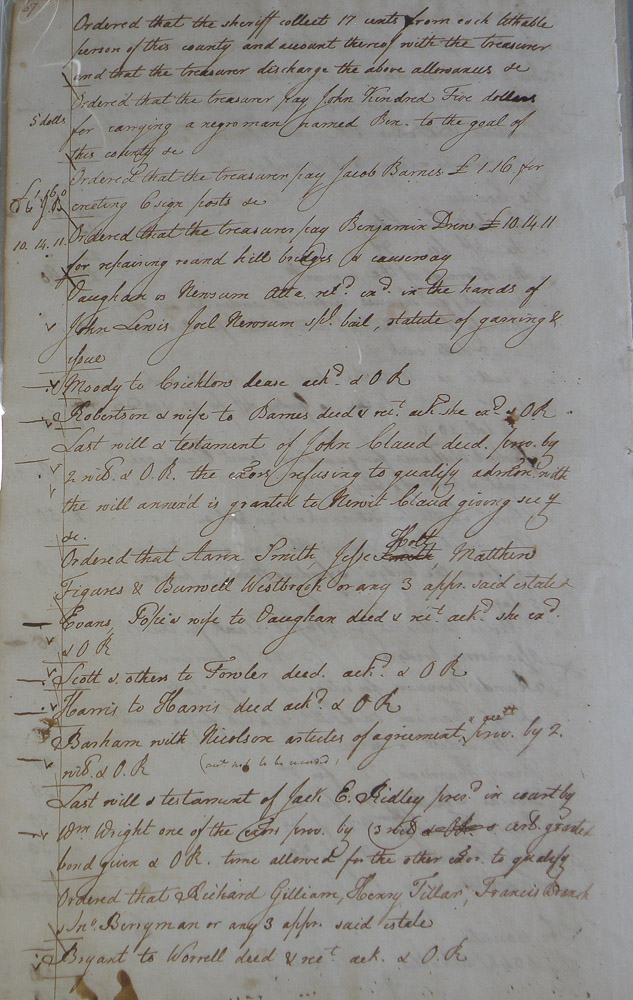 67
Ordered that the sheriff collect 17 cents from each tithable
person of this county and account thereof with the treasurer
and that the treasurer discharge the above allowances &c
Ordered that the treasurer pay John Kindred Five dollars
5 dolls
for carrying a negro man named Ben. to the goal of
this county &c
Ordered that the treasurer pay Jacob Barnes £ 1.16 for
erecting 6 sign posts &c
Ordered that the treasurer pay Benjamin Drew £ 10.14.11
10.14.11
for repairing round hill bridges & causeway
Vaughan vs Newsum Atta. ret.d exd. in the hands of
John Lewis Joel Newsum spl. bail, statute of gaming &
issue
Moody to Cricklow dease ack.d & O R
Robertson & wife to Barnes deed & rec.t ack she exd & O R
Last will & testament of John Claud decd. prov. by
2 wits. & O.R. the exors refusing to qualify admon. with
the will annex'd is granted to Newit Claud giving secy
&c.
Ordered that Aaron Smith Jesse Holt Matthew
Figures & Burwell Westbrook or any 3 appr. said estate
Evans, Pope & wife to Vaughan deed & rect ackd she exd.
& O R
Scott & others to Fowler deed. ackd. & O R
Harris to Harris deed ackd. & O R
Barham with Nicolson articles of agreement prov. by 2.
wits. & O. R
Last will & testament of Jack E. Ridley presd in court by
Wm Wright one of the exors prov. by (3 wits) cert. granted
bond given & O R. time allowed for the other exor. to qualify
Ordered that Richard Gilliam, Henry Tillar, Francis Branch
& Jno. Berryman or any 3 appr. said estate
Bryant to Worrell deed & rect ack. & O. R